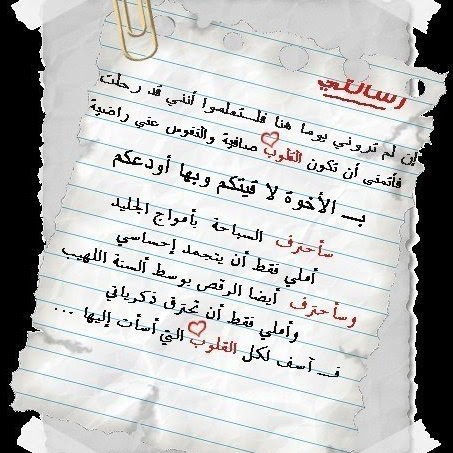 رسالتي
إن لم تروني يوما هنا فلستعلموا أنني قد رحلت
فأتمنى أن تكون القلوب صافية والنفوس عني راضية
بـــ الأخوة لاقيتكم وبها أودعكم
سأحترف السباحة بأمواج الجليد
أملي فقط أن يتجمد إحساسي
وسأحترف أيضا الرقص بوسط ألسنة اللهيب
وأملي فقط أن تحترق ذكرياتي
فــ آسف لكل القلوب التي أسأت إليها ...